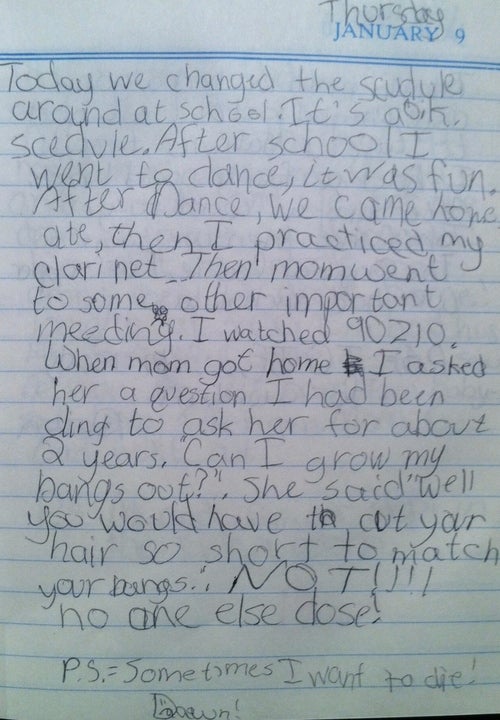 Thursday
JANUARY 9
Today we changed the scudyle
around at school. It's a o.k.
scedule. After school I
went to dance, it was fun.
After Dance, we came home
ate, then I practiced my
clarinet. Then mom went
to some other important
meeding. I watched 90210.
When mom got home I asked
her a question I had been
ding to ask her for about
2 years. "Can I grow my
bangs out?". She said "Well
you would have to cut your
hair so short to match
your bangs." NOT!!!!
no one else dose!
P.S.=Sometimes I want to die!
Dawn!